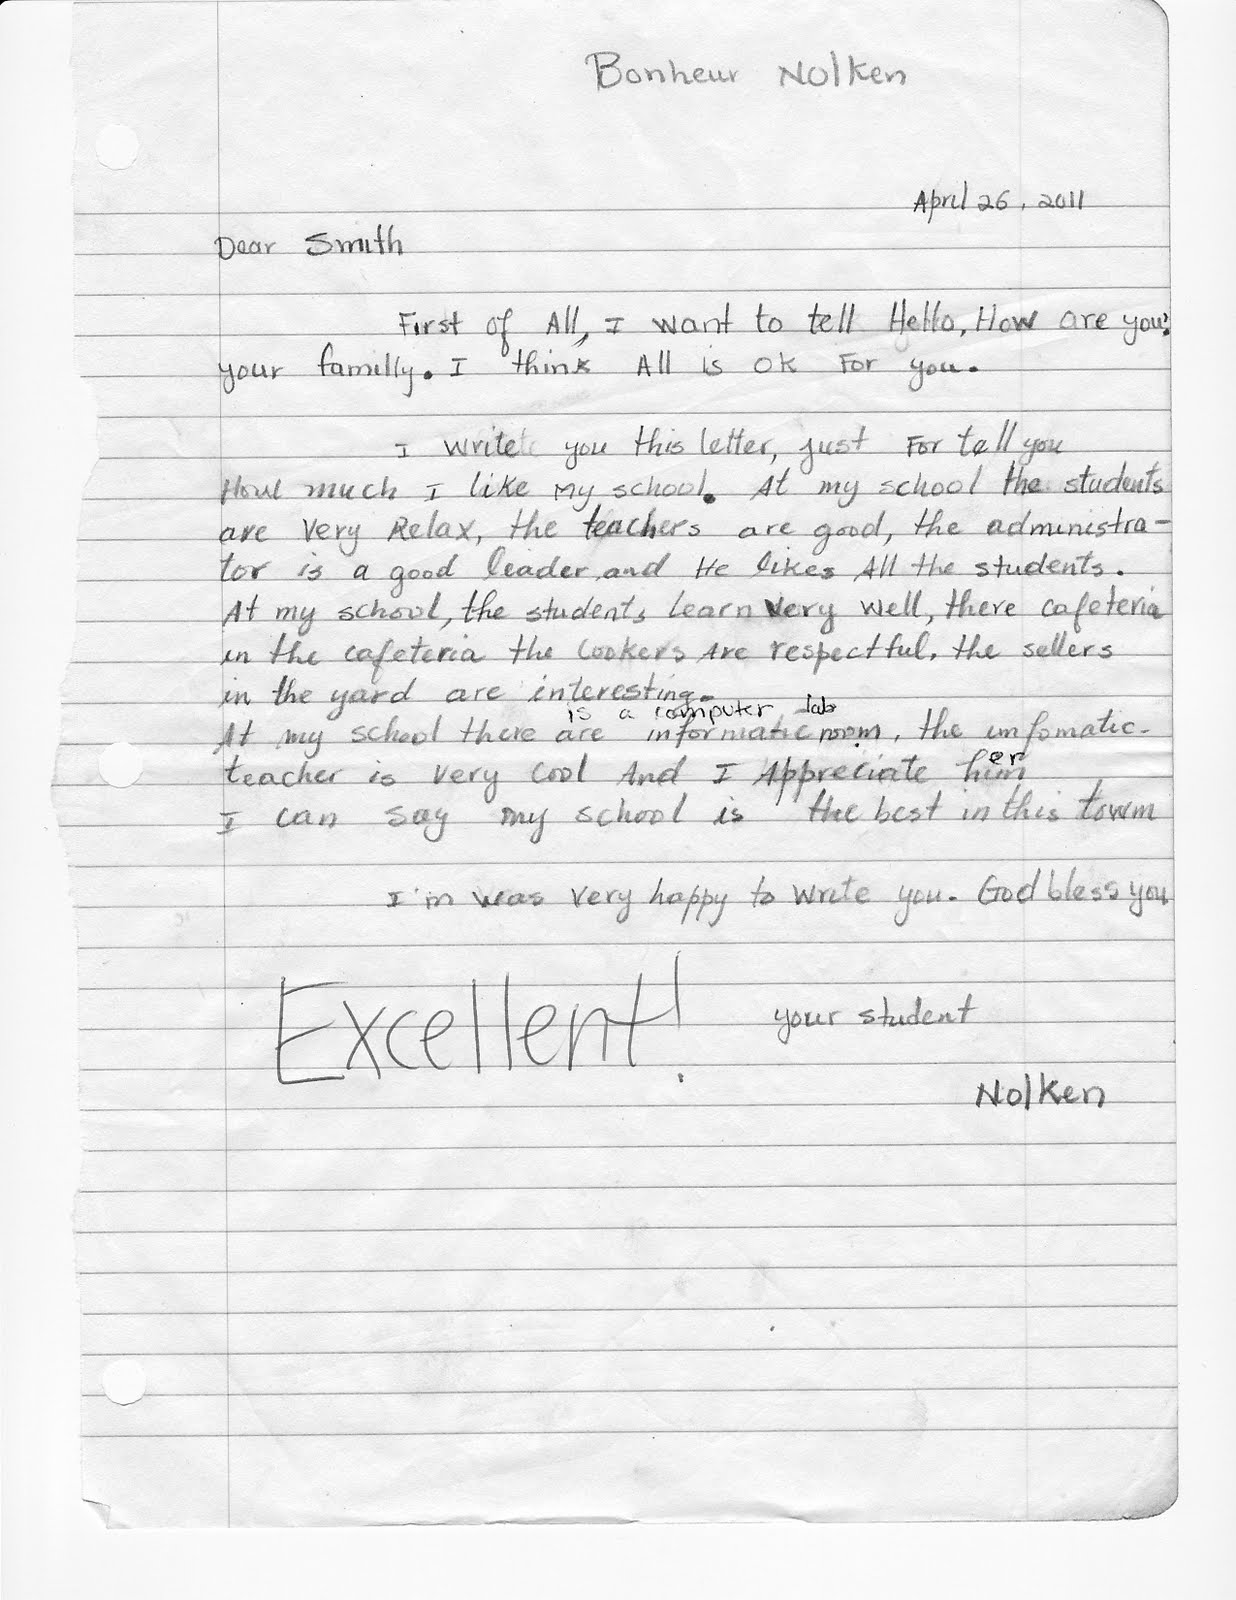 Bonheur Nolken
April 26, 2011
Dear Smith
First of All, I want to tell Hello, How are you?
your familly. I think All is OK For you.
I write you this letter, just For tell you
How much I like My school. At my school the students
are Very Relax, the teachers are good, the administra-
tor is a good leader and He likes All the students.
At my school, the students learn Very well, there cafeteria
in the cafeteria the Cookers Are respectful, the sellers
in the yard are interesting.
is a computer lab
At my school there are informatic room, the infomatic-
teacher is Very Cool And I Appreciate him
er
I can say my school is the best in this towm
I'm was Very happy to Write you. God bless you
Excellent!
your student
Nolken